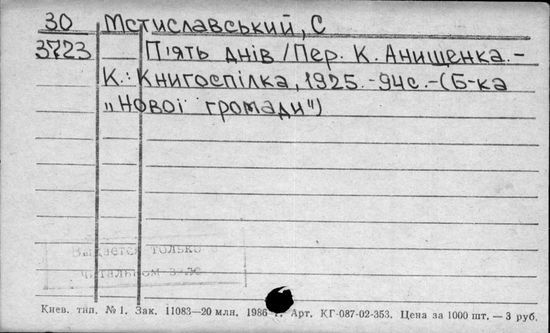 30 Мстиславський, С
3723 П'ять днів / Пер. К. Анищенка. -
К.: Книгоспілка, 1925. - 94с. - (Б-ка
„Нової громади")
Выдается только в
читальном зале
Киев. тип. №1. Зак. 11083—20 млн. 1986 г. Арт. КГ-087-02-353. Цена за 1000 шт. — 3 руб.